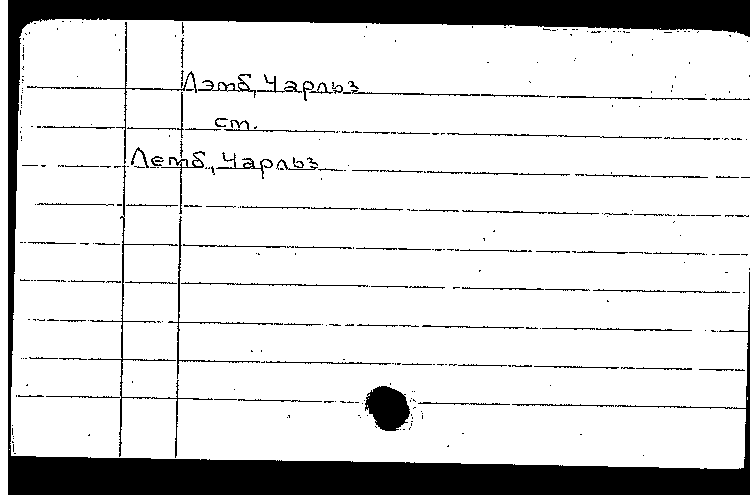 Лэмб, Чарльз
ст.
Лемб, Чарльз